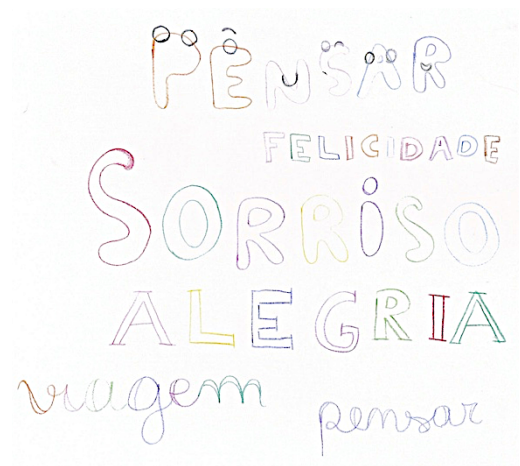 PENSAR
FELICIDADE
SORRiSO
ALEGRIA
viagem
pensar